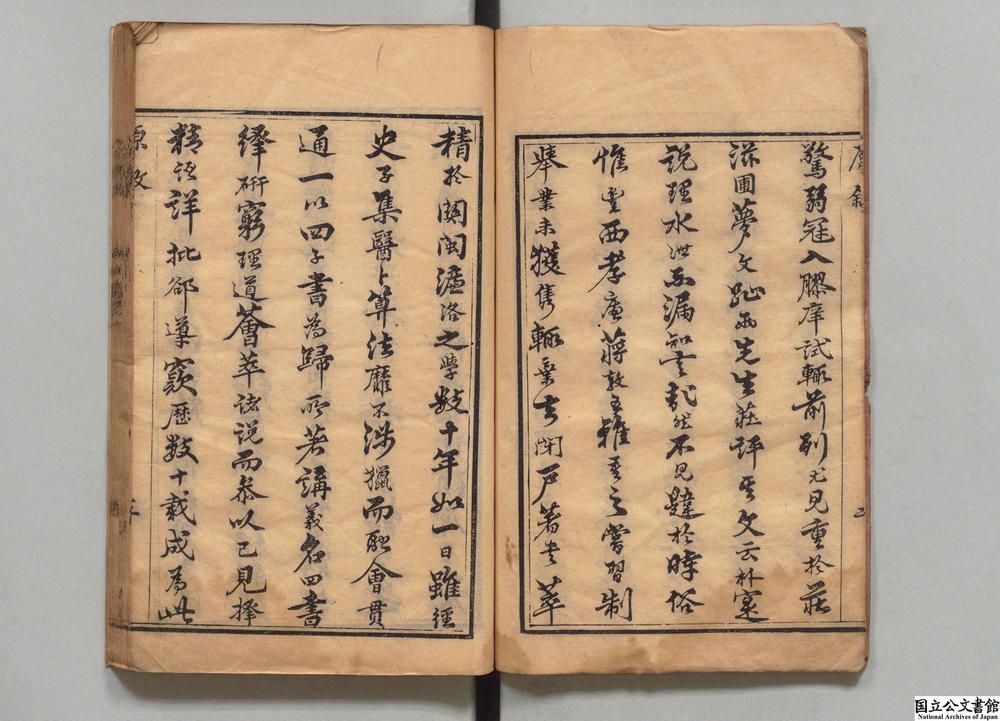 驚弱冠入膠庠試輒前列尤見重於莊
滋圃夢文趾兩先生莊評其文云朴實
說理水泄不漏知言哉然不見韙於時俗
惟豐西孝廉蔣敦五雅重之嘗習制
舉業未獲雋輒棄去閉戶著書萃
精於關閩濂洛之學數十年如一日雖經
史子集醫卜算法靡不涉獵而融會貫
通一以四子書為歸所著講義名四書
繹硏窮理道薈萃諸說而參以己見擇
精語詳批郤導窾歷數十載成為此
国立公文書館
National Archives of Japan